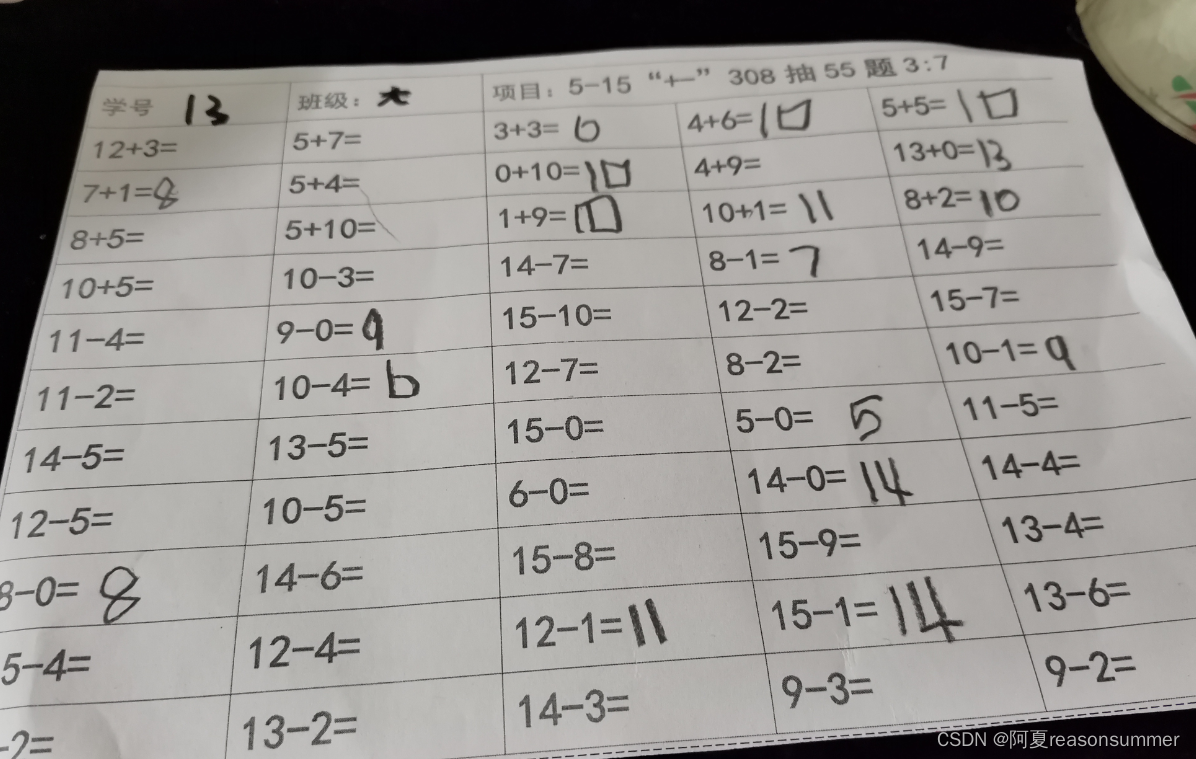 学号 13 班级：大 项目：5-15 “+-” 308 抽 55 题 3:7
12+3= 5+7= 3+3= 6 4+6=10 5+5=10
7+1=8 5+4= 0+10=10 4+9= 13+0=13
8+5= 5+10= 1+9=10 10+1= 11 8+2=10
10+5= 10-3= 14-7= 8-1= 7 14-9=
11-4= 9-0= 9 15-10= 12-2= 15-7=
11-2= 10-4= 6 12-7= 8-2= 10-1= 9
14-5= 13-5= 15-0= 5-0= 5 11-5=
12-5= 10-5= 6-0= 14-0= 14 14-4=
8-0= 8 14-6= 15-8= 15-9= 13-4=
5-4= 12-4= 12-1=11 15-1= 14 13-6=
-2= 13-2= 14-3= 9-3= 9-2=
CSDN @阿夏reasonsummer